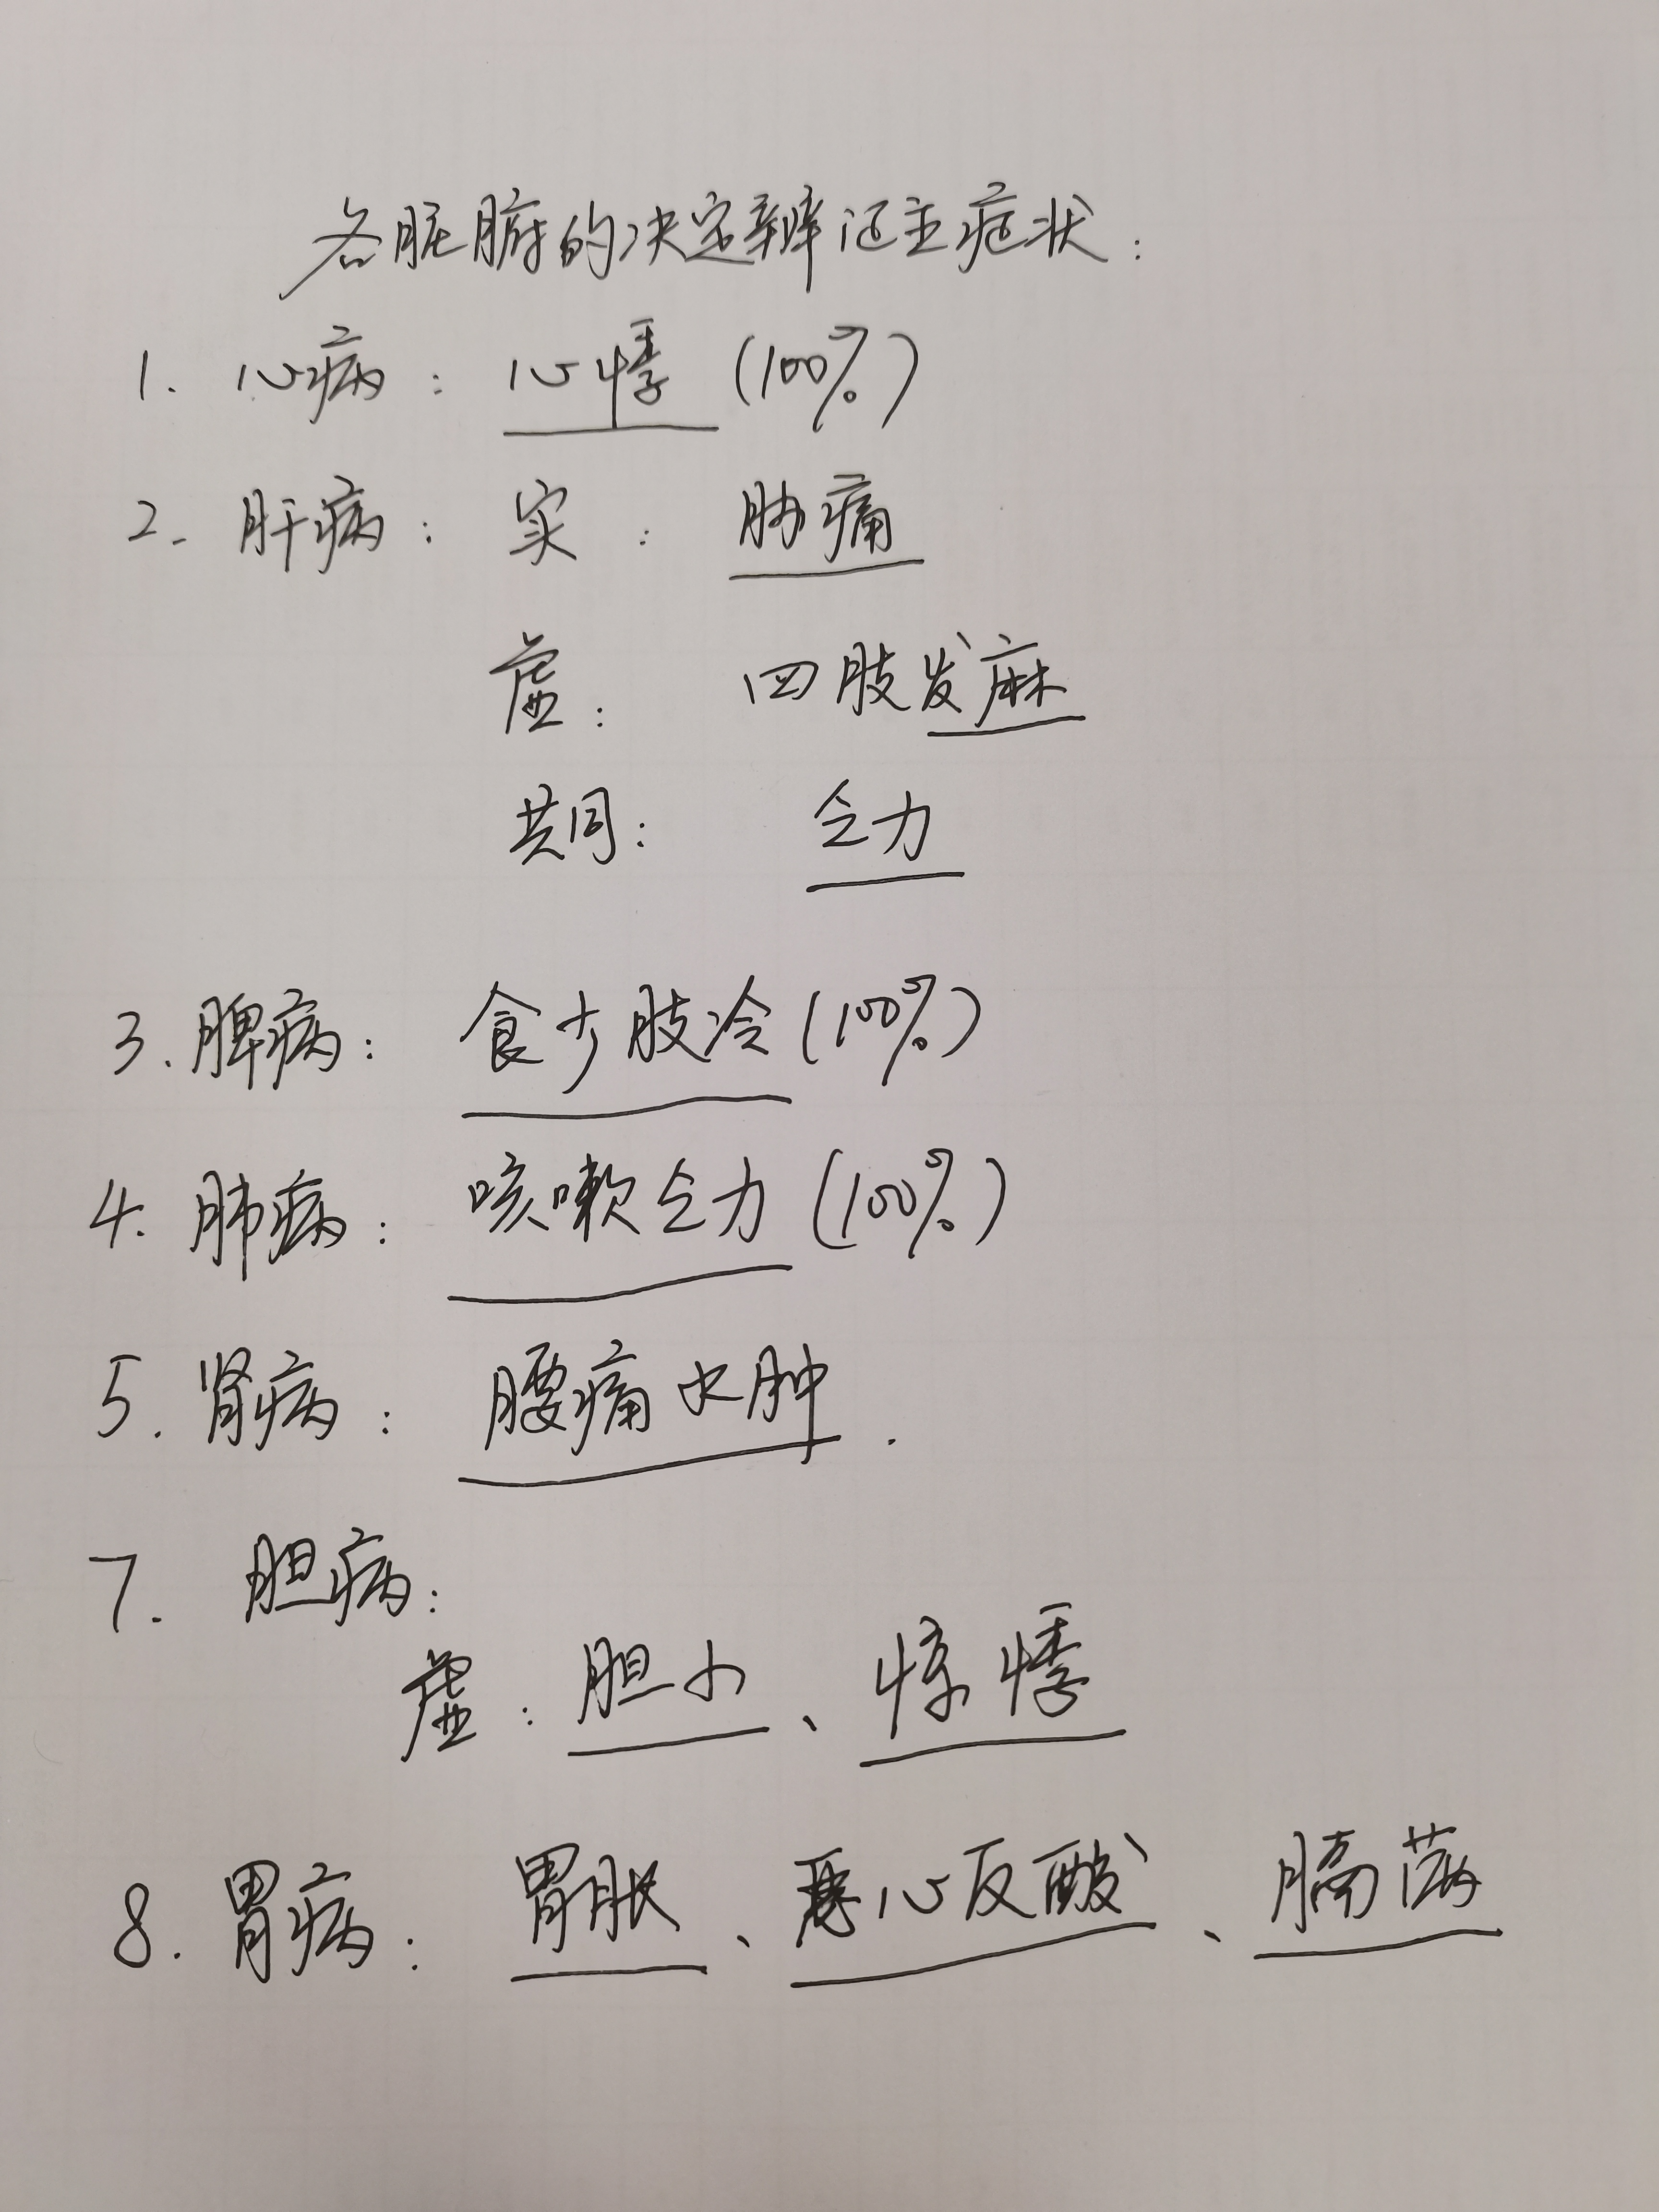 各脏腑的决定辩证主症状：
1. 心病：心悸(100%)
2. 肝病：实：胁痛
虚：四肢发麻
共同：乏力
3. 脾病：食少肢冷(100%)
4. 肺病：咳嗽乏力(100%)
5. 肾病：腰痛水肿.
7. 胆病：
虚：胆小、惊悸
8. 胃病：胃胀、恶心反酸、膈满